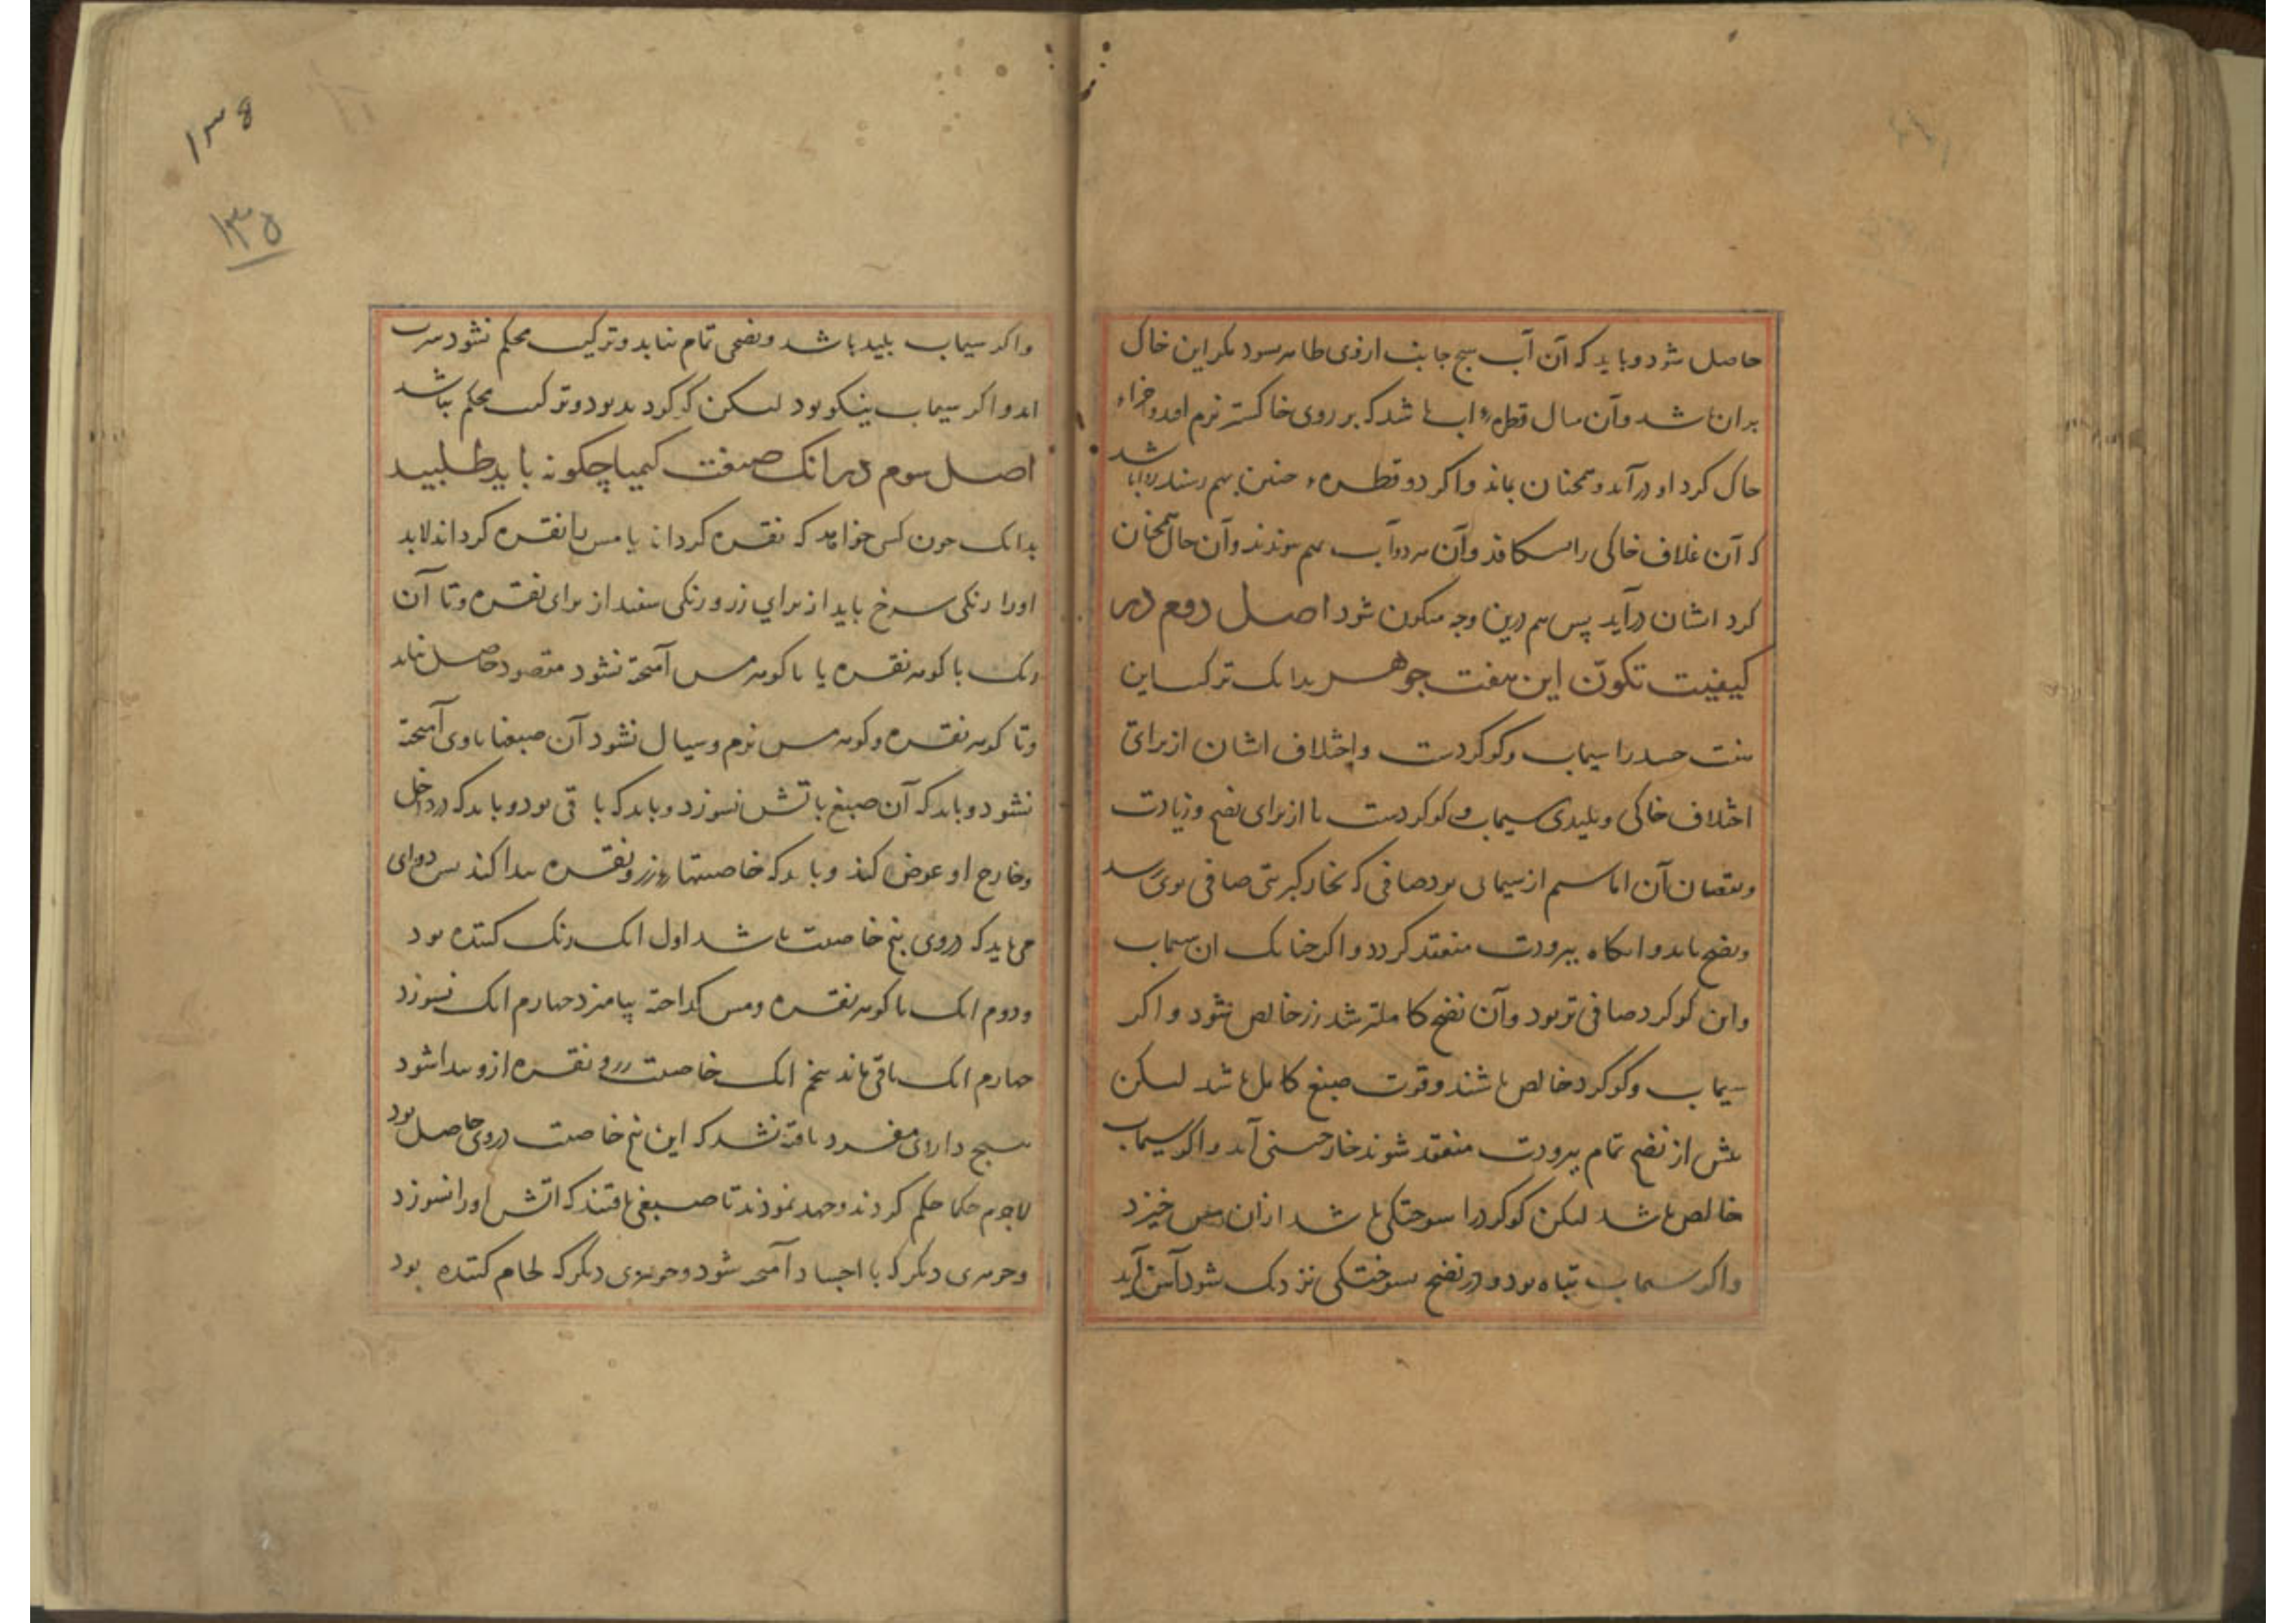 حاصل شود و باید که آن آب هیچ جانب ازوی ظاهر نبود مکر این خاک
بران باشد و آن مثال قطرهٔ آب باشد که بر روی خاکستر نرم افتد و اجزاء
خاک کرد او درآید و همچنان بماند و اکر دو قطرهء چنین بهم رسند باشد
که آن غلاف خاکی را بشکافد و آن هر دو آب بهم پیوندند و آن خاک همچنان
کرد اشان درآید پس هم درین وجه متکون شود اصل دوم در
کیفیت تکون این هفت جوهر بدانک ترکیب این
هفت جسد را سیماب و کوکردست و اختلاف اشان از برای
اختلاف خاکی و پلیدی سیماب و کوکردست یا از برای نضج و زیادت
و نقصان آن اما سیم از سیمابی بود صافی که بخار کبریتی صافی بوی رسد
و نضج یابد و انکاه ببرودت منعقد کردد و اکر چنانک ان سیماب
واین کوکرد صافی تر بود و آن نضج کاملتر شد زر خالص شود و اکر
سیماب و کوکرد خالص باشند و قوت صبغ کامل باشد لیکن
پیش از نضج تمام ببرودت منعقد شوند خارصینی آید و اکر سیماب
خالص باشد لیکن کوکرد را سوختکی باشد ازان مس خیزد
واکر سیماب تباه بود و در نضج بسوختکی نزدیک شود آهن آید
۱۳۵
۱۳۵
واکر سیماب پلید باشد و نضجی تمام نیابد و ترکیب محکم نشود سرب
اید و اکر سیماب نیکو بود لیکن کوکرد بد بود و ترکیب محکم نباشد
اصل سوم در انک صنعت کیمیا چکونه باید طلبید
بدانک چون کسی خواهد که نقره کرداند یا مس را نقره کرداند لابد
اورا رنکی سرخ باید از برای زر و رنکی سفید از برای نقره و تا آن
رنک با کوهر نقره یا با کوهر مس آمیخته نشود مقصود حاصل نیاید
وتا کوهر نقره و کوهر مس نرم و سیال نشود آن صبغها باوی آمیخته
نشود و باید که آن صبغ باتش نسوزد و باید که باقی بود و باید که در داخل
وخارج او غوض کند و باید که خاصیتهاء زر و نقره پیدا کند پس دوای
می باید که دروی پنج خاصیت باشد اول انک رنک کننده بود
ودوم انک با کوهر نقره و مس کداخته بیامیزد چهارم انک نسوزد
چهارم انک باقی ماند پنجم انک خاصیت زر و نقره ازو پیدا شود
هیچ دارای مفرد یافته نشد که این پنج خاصیت دروی حاصل بود
لاجرم حکما حکم کردند و جهد نمودند تا صبغی یافتند که اتش اورا نسوزد
وجوهری دیکر که با اجساد آمیخته شود و جوهری دیکر که لحام کننده بود